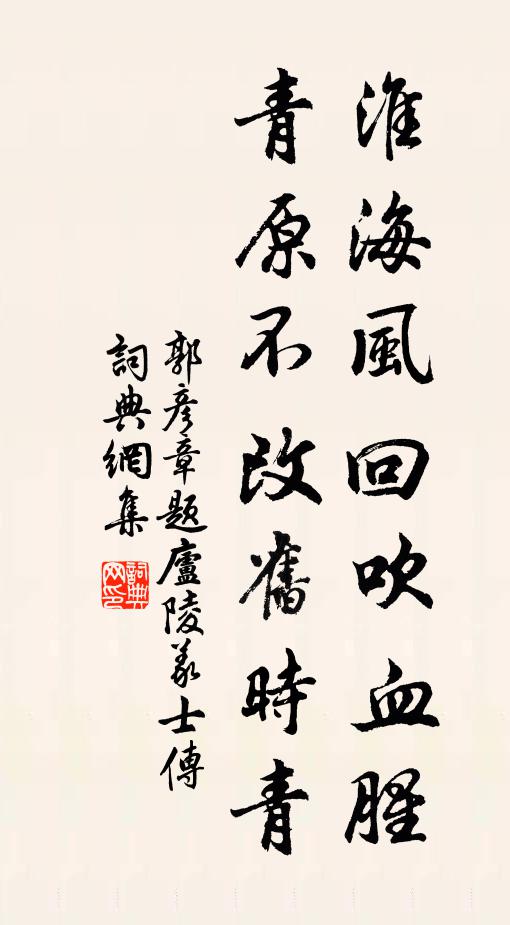 淮海風回吹血腥
青原不改舊時青
郭彥章題廬陵義士傳
詞典網集
詞典网印